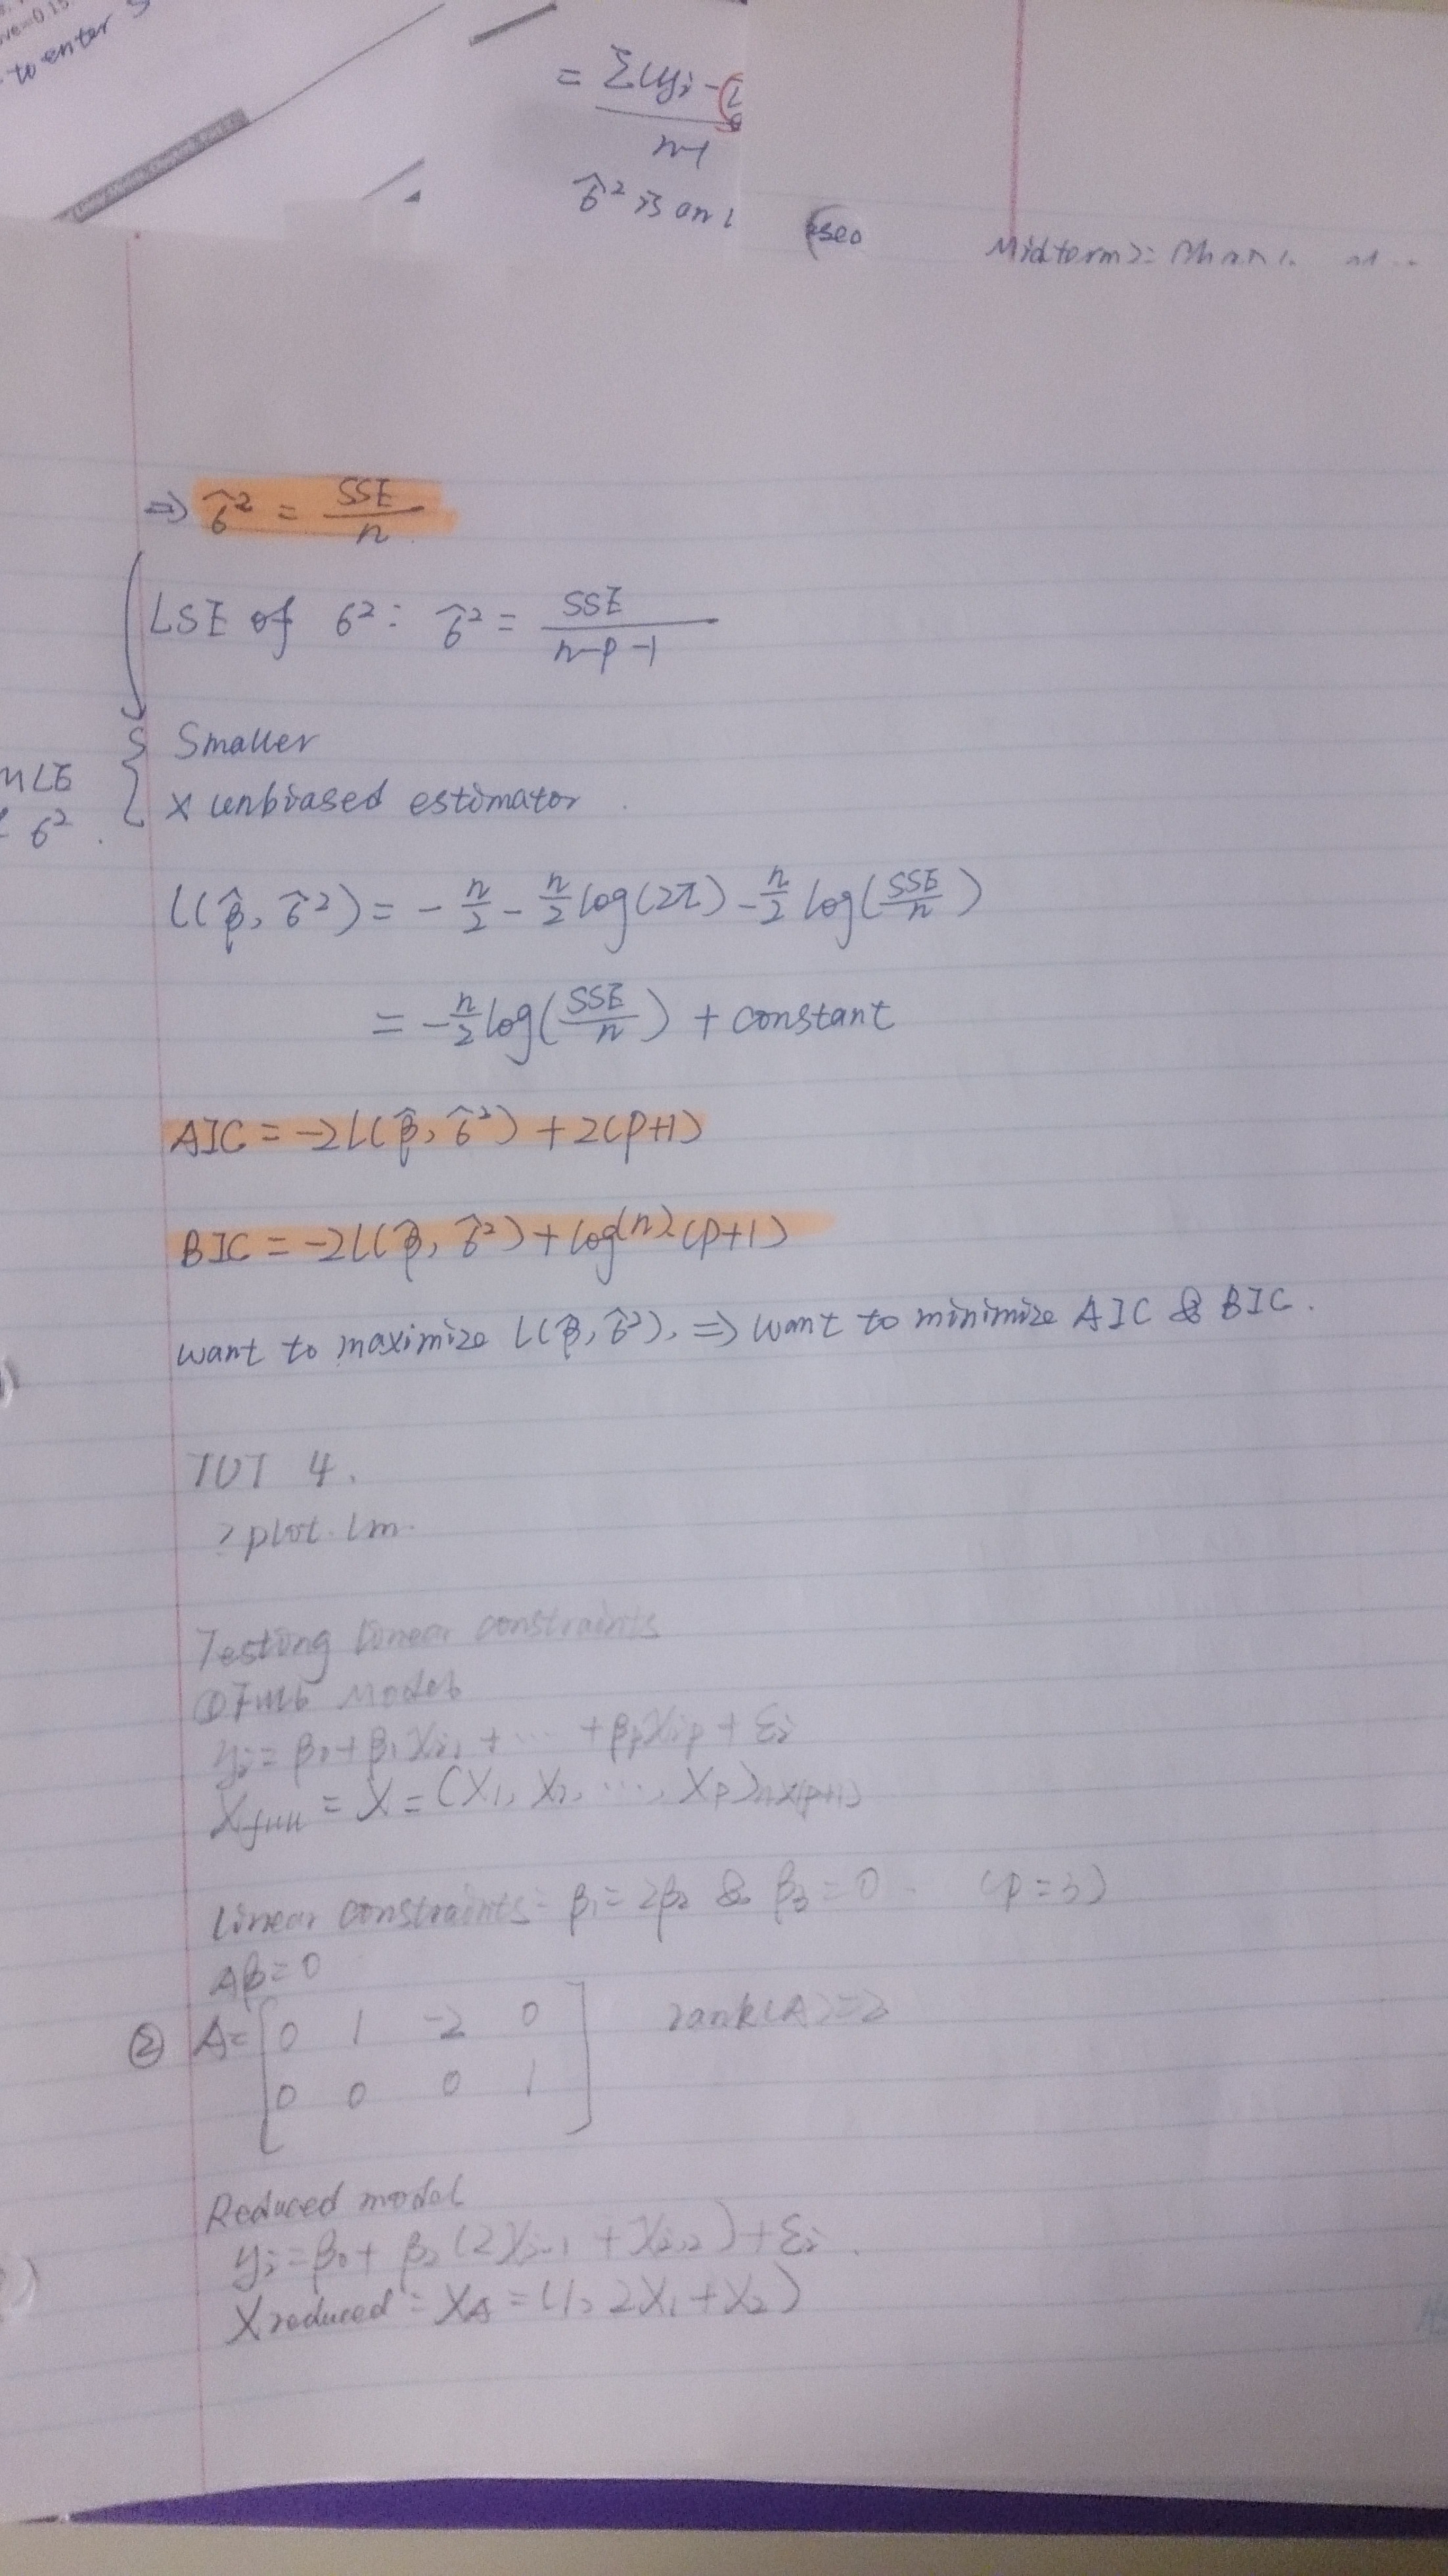 ve=0.15
to enter
= Σ(yᵢ -
n-1
σ̂² is an
Midterm 2:
⇒ σ̂² = SSE/n
LSE of σ²: σ̂² = SSE/(n-p-1)
Smaller
MLE
x unbiased estimator
σ².
l(β̂, σ̂²) = - n/2 - n/2 log(2π) - n/2 log(SSE/n)
= - n/2 log(SSE/n) + constant
AIC = -2l(β̂, σ̂²) + 2(p+1)
BIC = -2l(β̂, σ̂²) + log(n)(p+1)
want to maximize l(β̂, σ̂²), ⇒ want to minimize AIC & BIC.
TUT 4.
?plot.lm.
Testing linear constraints
① Full Model
yᵢ = β₀ + β₁xᵢ,₁ + ... + βₚxᵢₚ + εᵢ
X full = X = (X₁, X₂, ..., Xₚ)n×(p+1)
Linear constraints: β₁ = 2β₂ & β₃ = 0. (p=3)
Aβ = 0
② A = [0 1 -2 0 rank(A) = 2
0 0 0 1]
Reduced model
yᵢ = β₀ + β₂(2xᵢ,₁ + xᵢ,₂) + εᵢ.
X reduced = X_A = (1, 2X₁ + X₂)